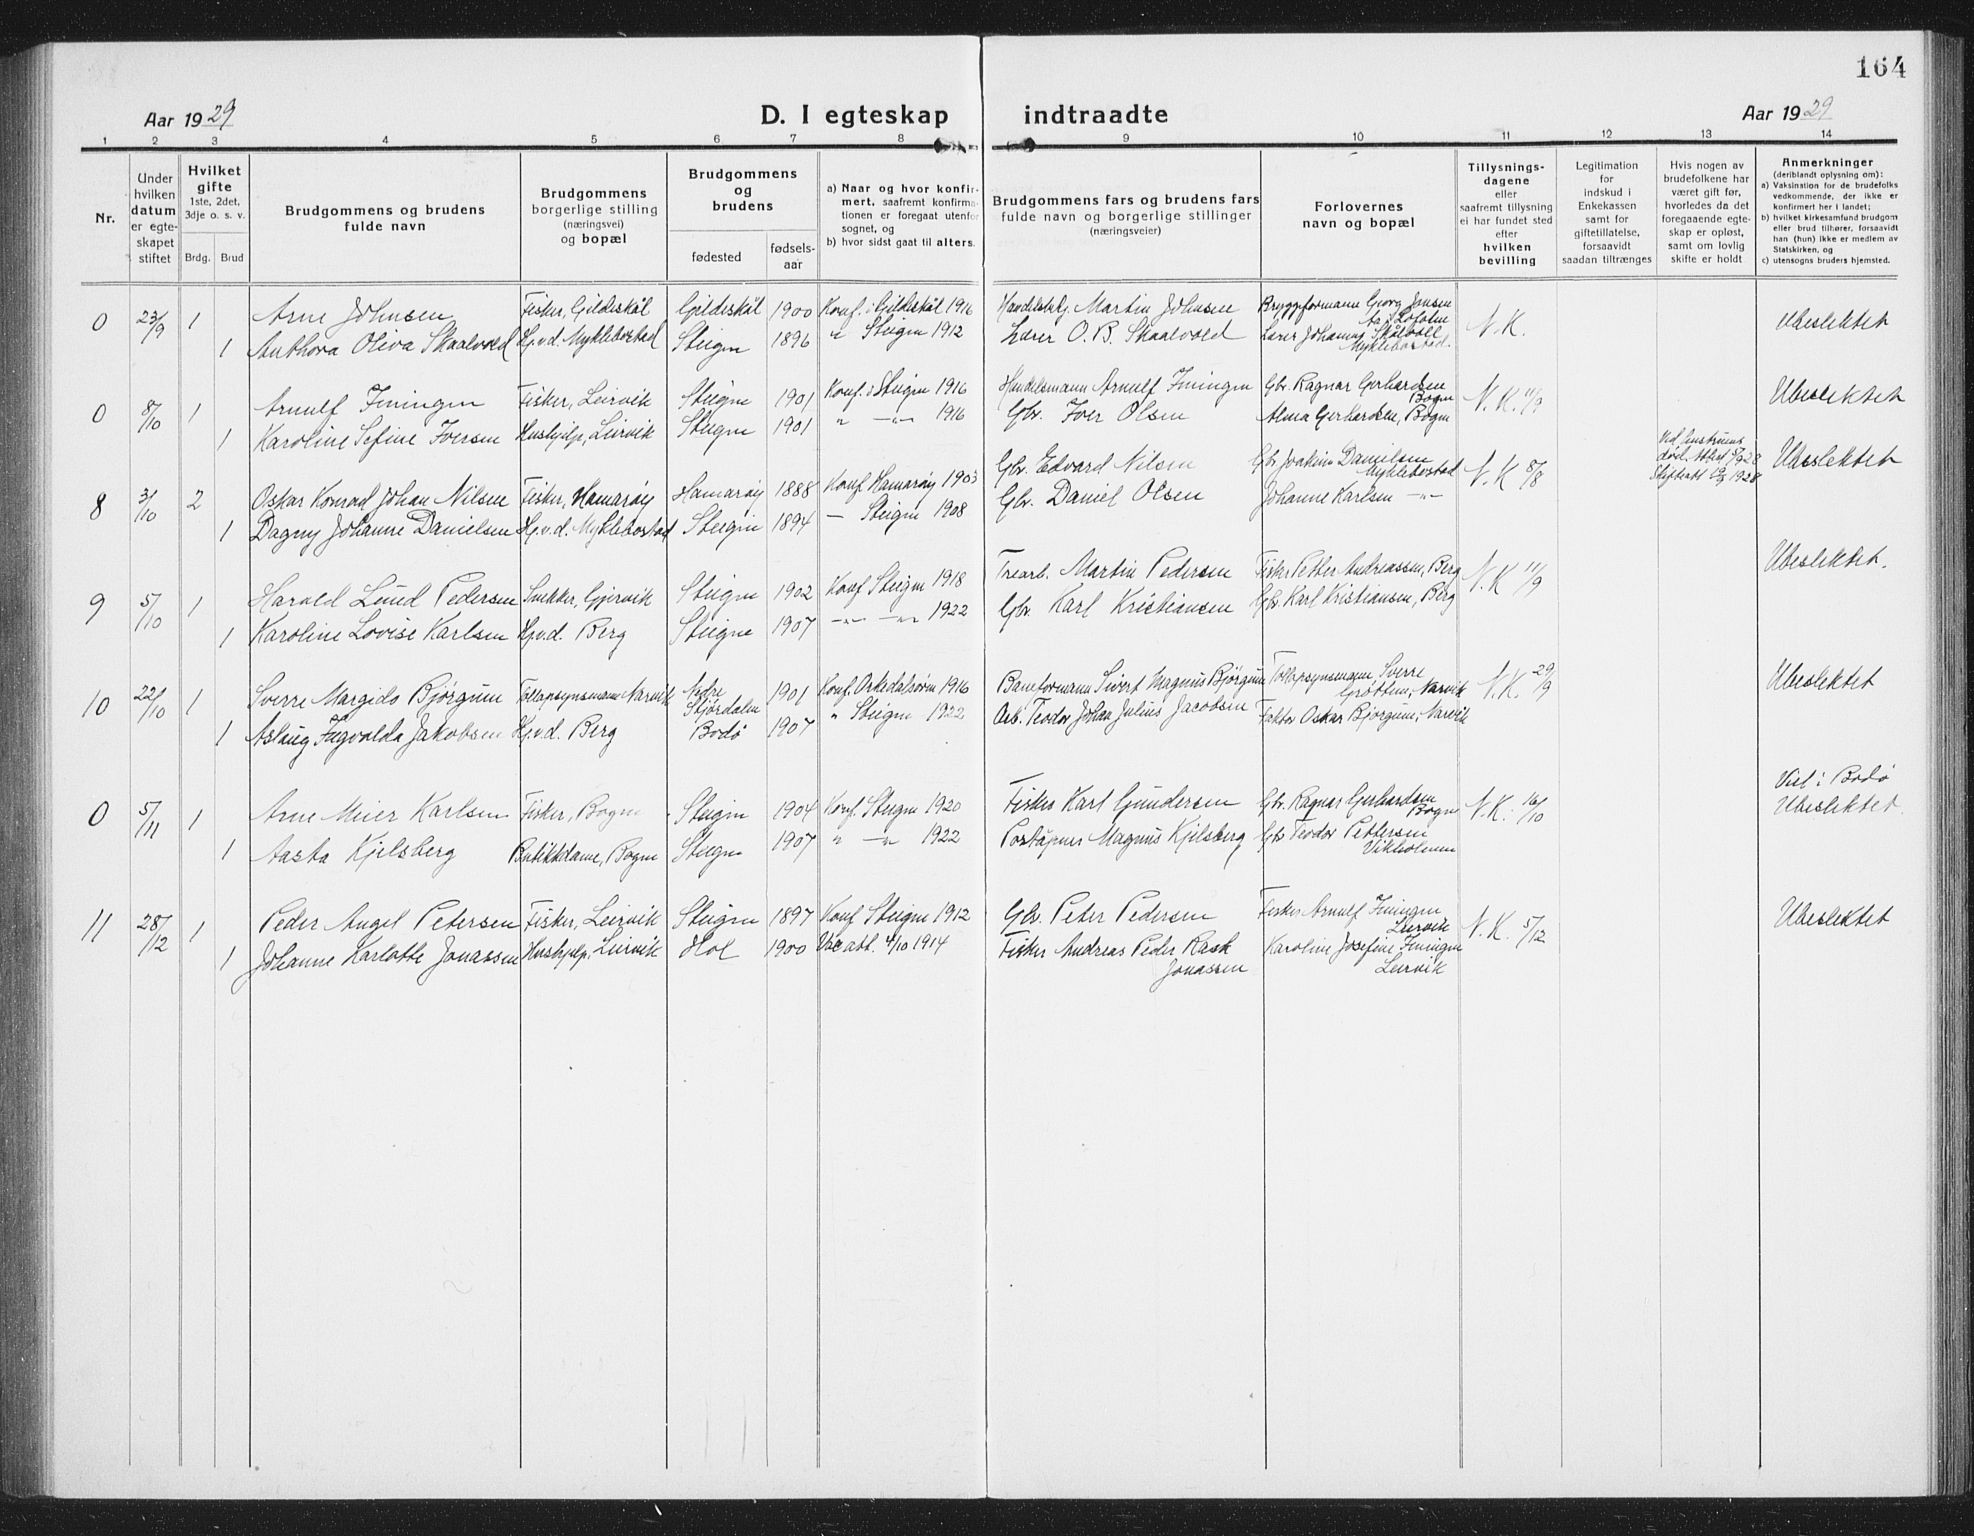 164
Aar 1929 D. I egteskap indtraadte Aar 1929
1 2 3 4 5 6 7 8 9 10 11 12 13 14
Nr.
Under hvilken datum er egteskapet stiftet
Hvilket gifte 1ste, 2det, 3dje o. s. v.
Brdg. Brud
Brudgommens og brudens fulde navn
Brudgommens borgerlige stilling (næringsvei) og bopæl
Brudgommens og brudens
fødested fødselsaar
a) Naar og hvor konfirmert, saafremt konfirmationen er foregaat utenfor sognet, og
b) hvor sidst gaat til alters.
Brudgommens fars og brudens fars fulde navn og borgerlige stillinger (næringsveier)
Forlovernes navn og bopæl
Tillysningsdagene eller saafremt tillysning ei har fundet sted efter hvilken bevilling
Legitimation for indskud i Enkekassen samt for giftetillatelse, forsaavidt saadan tiltrænges
Hvis nogen av brudefolkene har været gift før, hvorledes da det foregaaende egteskap er opløst, samt om lovlig skifte er holdt
Anmerkninger (deriblandt oplysning om):
a) Vaksination for de brudefolks vedkommende, der ikke er konfirmert her i landet;
b) hvilket kirkesamfund brudgom eller brud tilhører, forsaavidt han (hun) ikke er medlem av Statskirken, og
c) utensogns bruders hjemsted.
0 23/9 1 Arne Johnsen Fisker, Gildeskål Gildeskål 1900 Konf. i Gildeskål 1916 Martin Johnsen Bryggeformann Georg Jensen Å i Lofoten N.K. Ubeslektet
1 Anthora Oliva Skaalvold Hj.v.d. Myklebostad Steigen 1896 " Steigen 1912 Lærer O. B. Skaalvold Lærer Johannes Skålvoll Myklebostad.
0 8/10 1 Arnulf Iningen Fisker, Leirvik Steigen 1901 Konf. i Steigen 1916 Handelsmann Arnulf Iningen Gbr. Ragnar Gerhardsen Bogen N.K. 11/9 Ubeslektet
1 Karoline Sefine Iversen Hushjelp, Leirvik Steigen 1901 " -"- 1916 Gbr. Iver Olsen Alma Gerhardsen, Bogen
8 3/10 2 Oskar Konrad Johan Nilsen Fisker, Hamarøy Hamarøy 1888 Konf. Hamarøy 1903 Gbr. Edvard Nilsen Gbr. Joakim Danielsen Myklebostad N.K. 8/8 Ved hustruens død. Attest 1928 Skifteatt. 1928 Ubeslektet
1 Dagny Johanne Danielsen Hj.v.d. Myklebostad Steigen 1894 — Steigen 1908 Gbr. Daniel Olsen Johanne Karlsen -"-
9 5/10 1 Harald Lund Pedersen Snekker, Gjervik Steigen 1902 Konf. Steigen 1918 Trearb. Martin Pedersen Fisker Petter Andreassen, Berg N.K. 11/9 Ubeslektet.
1 Karoline Lovise Karlsen Hj.v.d. Berg Steigen 1907 -"- -"- 1922 Gbr. Karl Kristiansen Gbr. Karl Kristiansen, Berg
10 22/10 1 Sverre Margido Bjørgum Tollopsynsmann Narvik Nedre Stjørdalen 1901 Konf. Orkedalsøren 1916 Baneformann Sivert Magnus Bjørgum Tollopsynsmann Sverre Grøtten, Narvik N.K. 29/9 Ubeslektet
1 Aslaug Ingvalda Jakobsen Hj.v.d. Berg Bodø 1907 " Steigen 1922 Arb. Teodor Johan Julius Jacobsen Faktor Oskar Bjørgum, Narvik
0 5/11 1 Arne Meier Karlsen Fisker, Bogen Steigen 1904 Konf. Steigen 1920 Fisker Karl Gundersen Gbr. Ragnar Gerhardsen Bogen N.K. 16/10 Viet i Bodø Ubeslektet.
1 Aasta Kjelsberg Butikkdame, Bogen Steigen 1907 " -"- 1922 Poståpner Magnus Kjelsberg Gbr. Teodor Pettersen Vikholmen
11 28/12 1 Peder Angel Petersen Fisker, Leirvik Steigen 1897 Konf. Steigen 1912 Gbr. Peter Pedersen Fisker Arnulf Iningen Leirvik N.K. 5/12 Ubeslektet
1 Johanne Karlotte Jonassen Hushjelp, Leirvik Hol 1900 Vac.att. 4/10 1914 Fisker Andreas Peder Rask Jonassen Karoline Josefine Iningen Leirvik